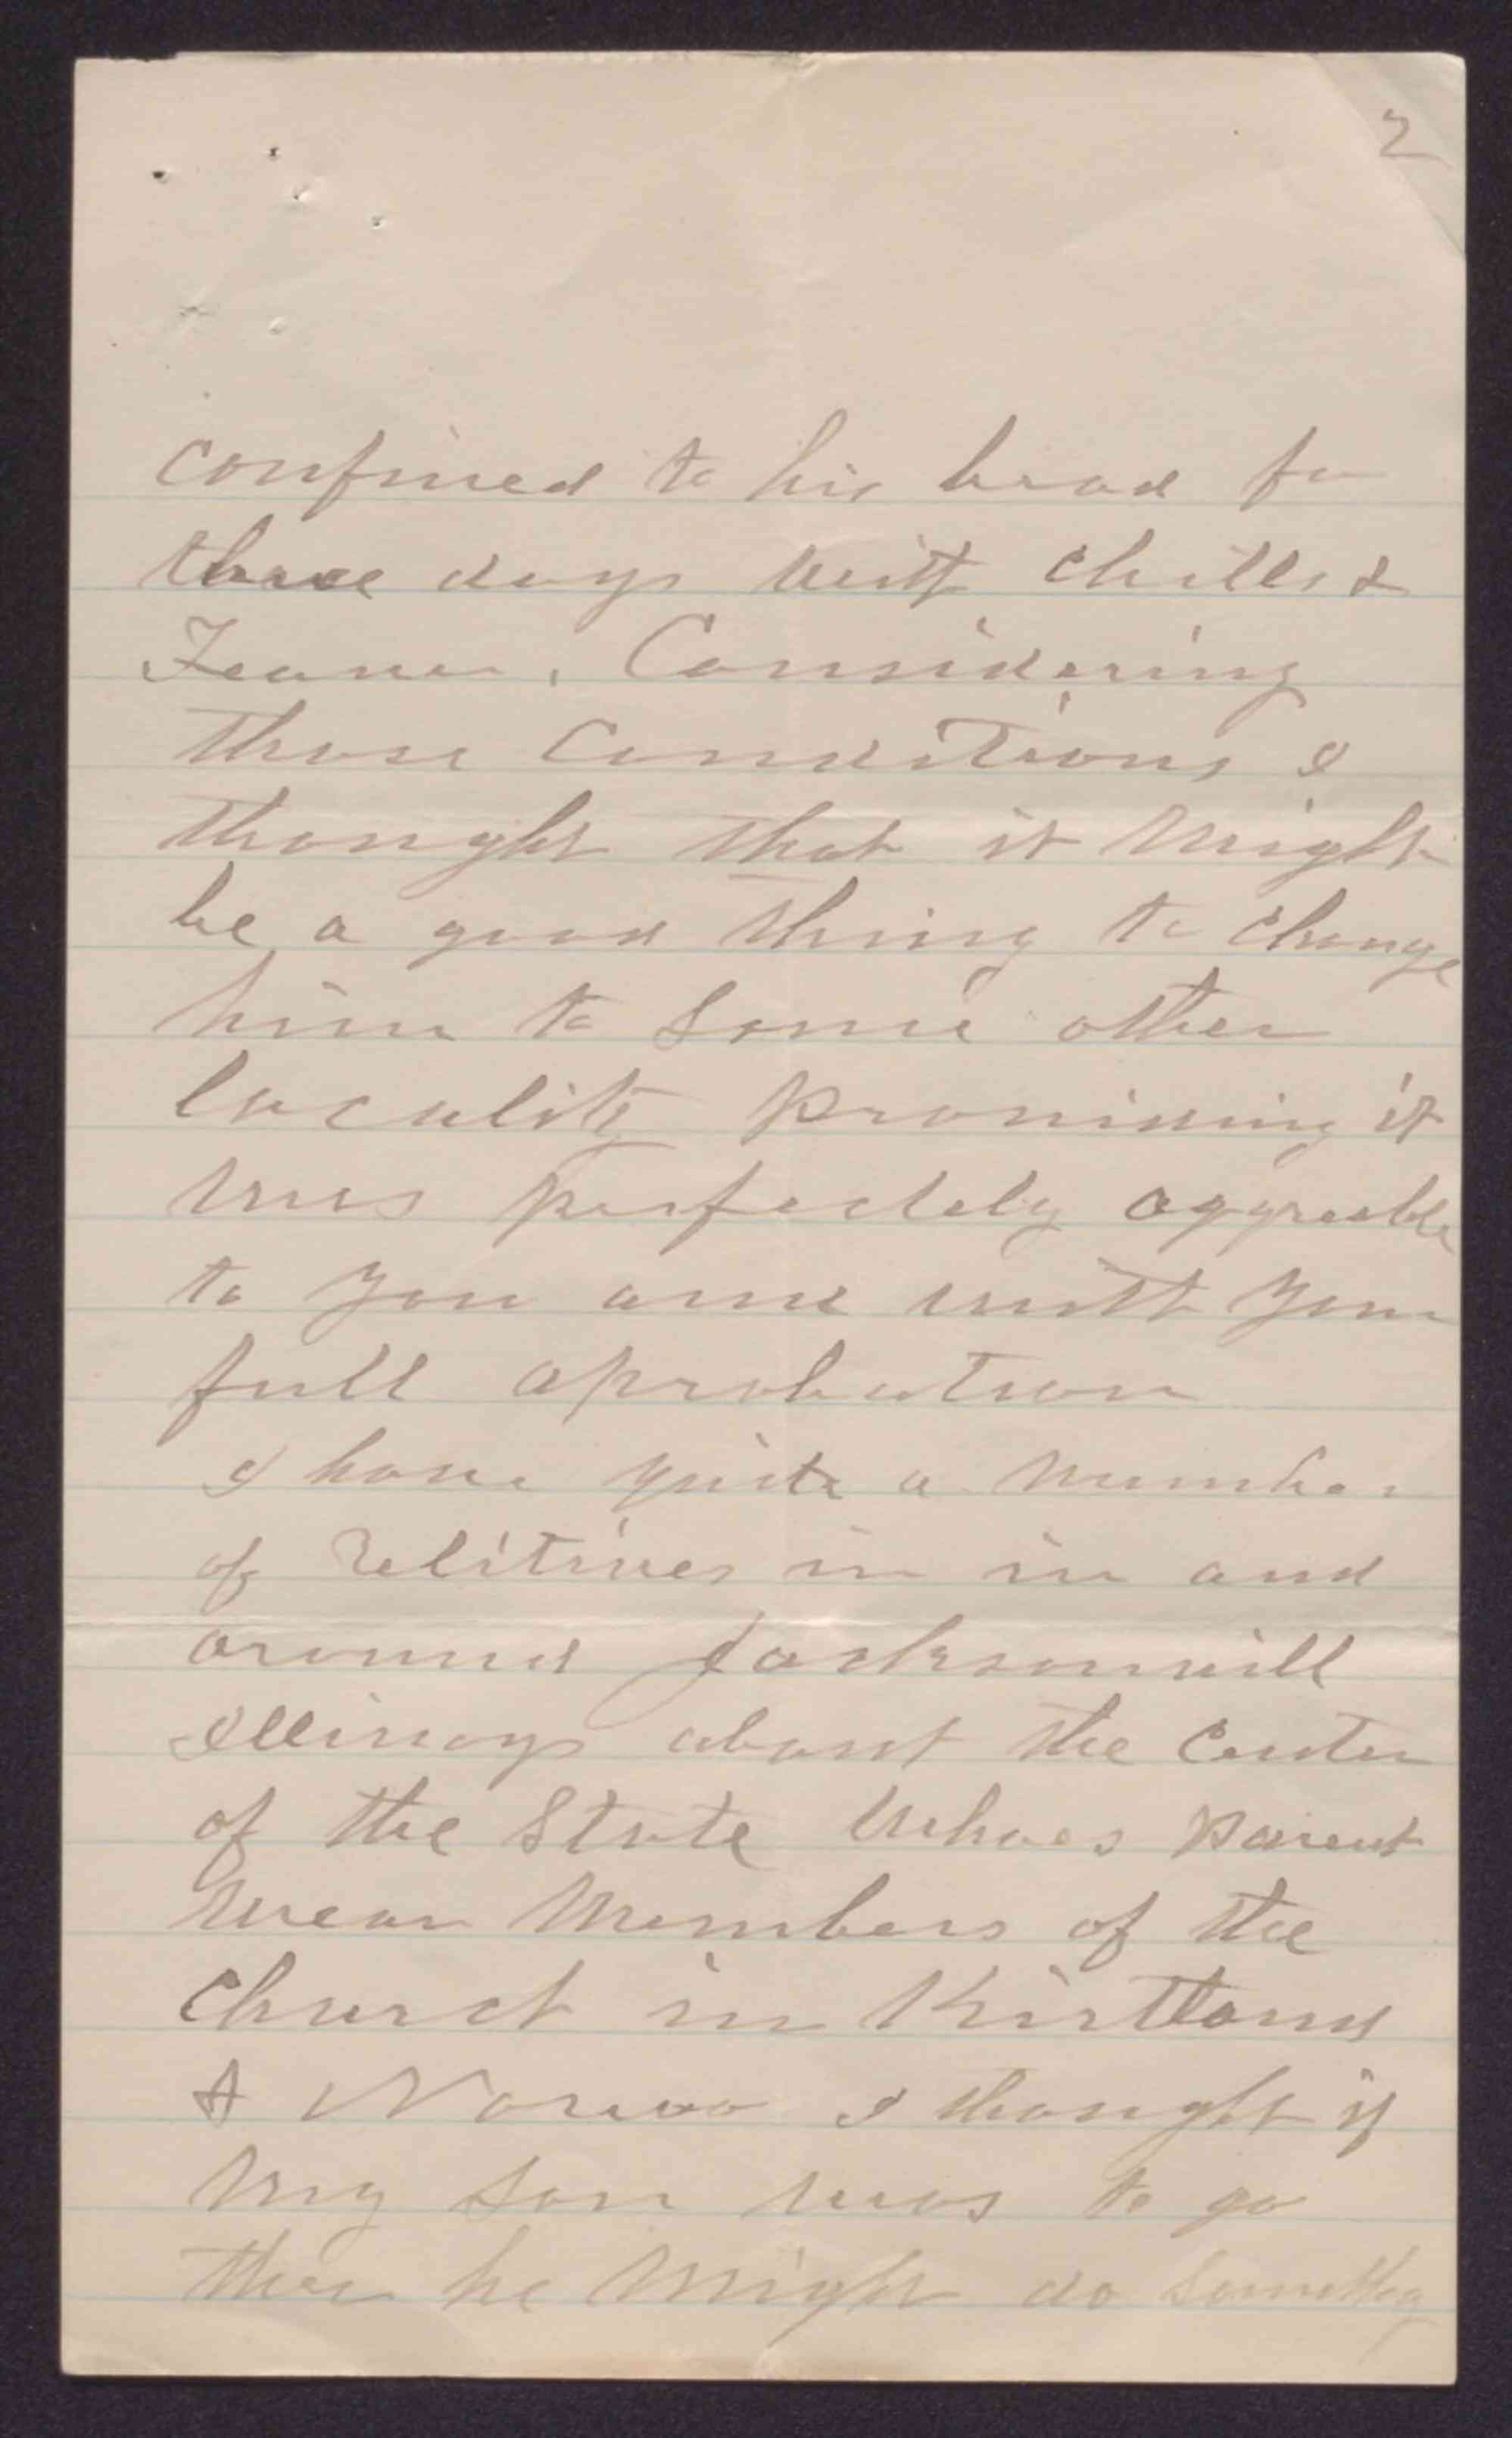 2
confined to his bead for
three days with chills &
Feaver. Considering
those Conditions I
thought that it might
be a good thing to change
him to some other
locality proniding it
was perfectely aggreable
to you and with your
full aprobation
I have quite a number
of relitives in in and
around Jacksonvill
Illinoys about the Center
of the State whoes parent
wear Members of the
Church in Kirtland
& Novoo I thought if
my son was to go
thear he might do something